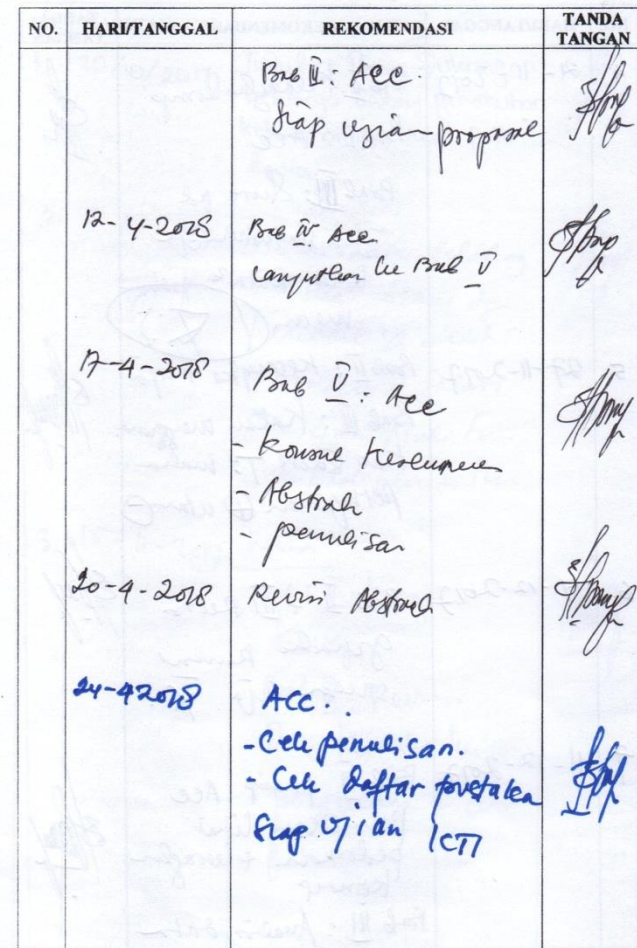 NO. HARI/TANGGAL REKOMENDASI TANDA TANGAN
Bab III : Acc.
Siap ujian proposal
12-4-2018 Bab IV Acc.
Lanjutkan ke Bab V
17-4-2018 Bab V : Acc
- Konsul
- Abstrak
- penulisan
20-4-2018 Revisi Abstrak
24-4-2018 ACC.
- Cek penulisan.
- Cek daftar pustaka
Siap Ujian KTI